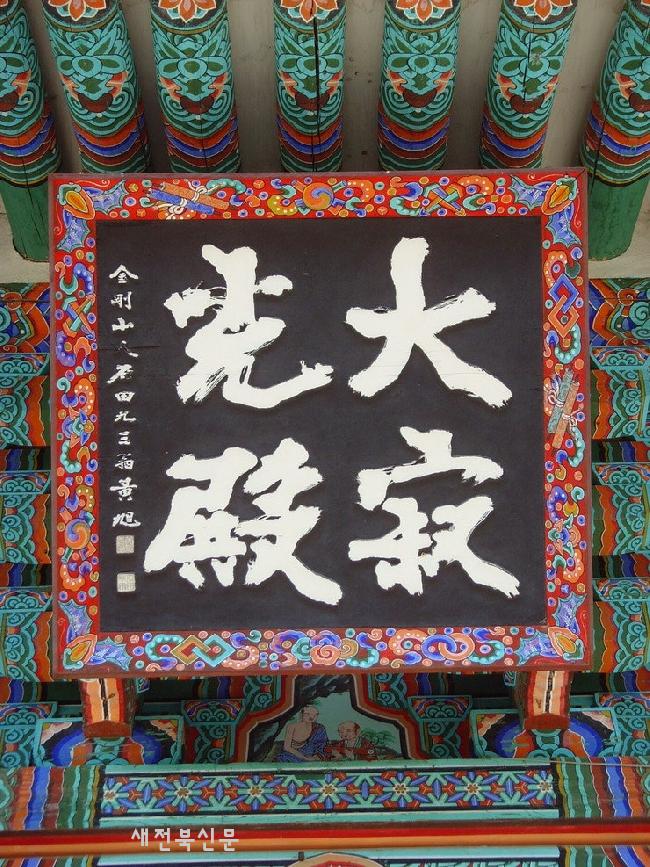 大寂
光殿
金剛山人石田九三翁黃旭
새전북신문